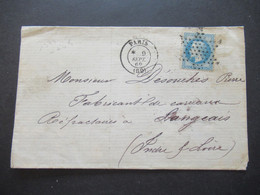 PARIS
8
(60)
Monsieur Desouches Pierre
Fabricant de carreaux
Réfractaires à Langeais
(Indre & Loire)